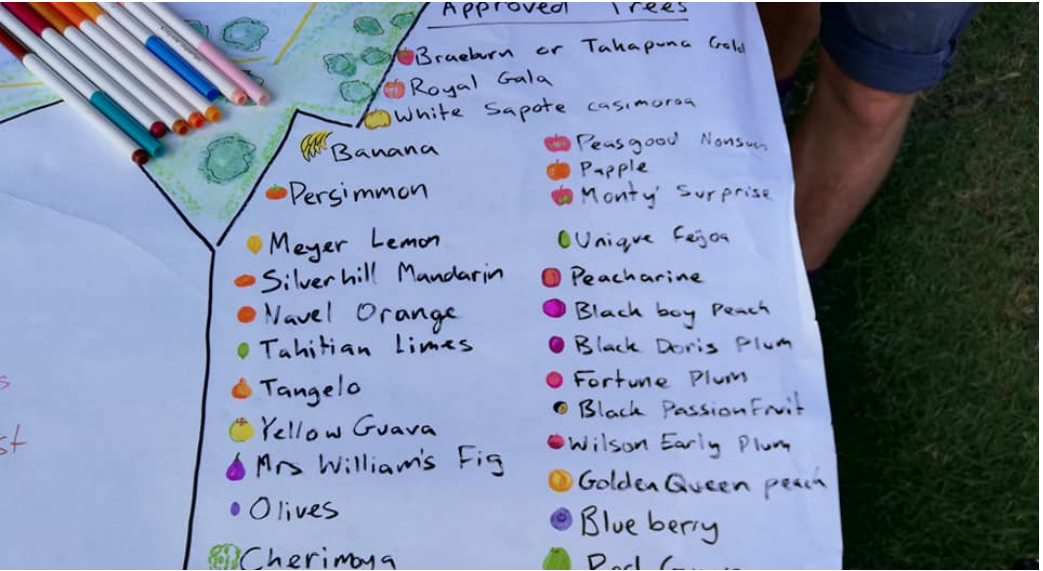 Approved Trees
Braeburn or Takapuna Gold
Royal Gala
White Sapote casimoroa
Banana
Persimmon
Meyer Lemon
Silverhill Mandarin
Navel Orange
Tahitian Limes
Tangelo
Yellow Guava
Mrs William's Fig
Olives
Cherimoya
Peasgood Nonsuch
Papple
Monty' Surprise
Unique Feijoa
Peacharine
Black boy Peach
Black Doris Plum
Fortune Plum
Black PassionFruit
Wilson Early Plum
Golden Queen peach
Blueberry
Red Guava